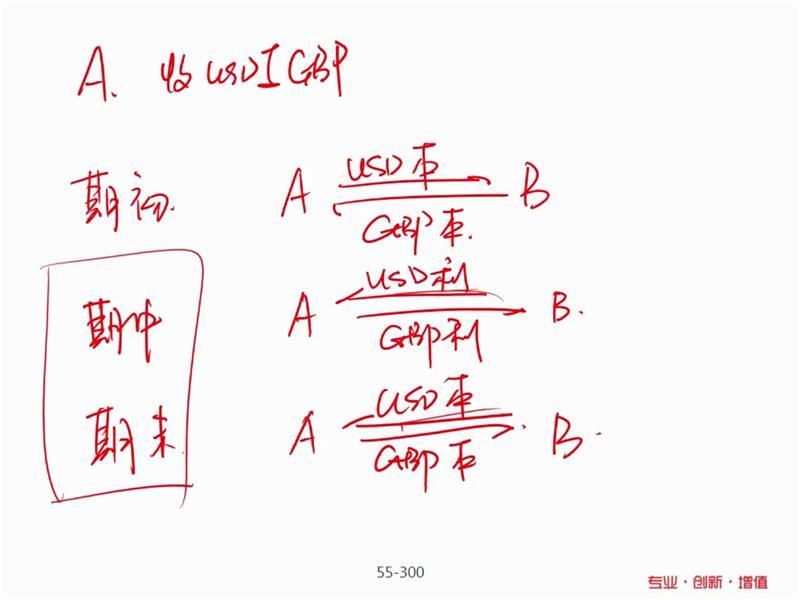 A. 收USD工GBP
USD本
期初. A B
GBP本.
USD利
期中 A B.
GBP利
USD本
期末. A B.
GBP本
55-300
专业·创新·增值